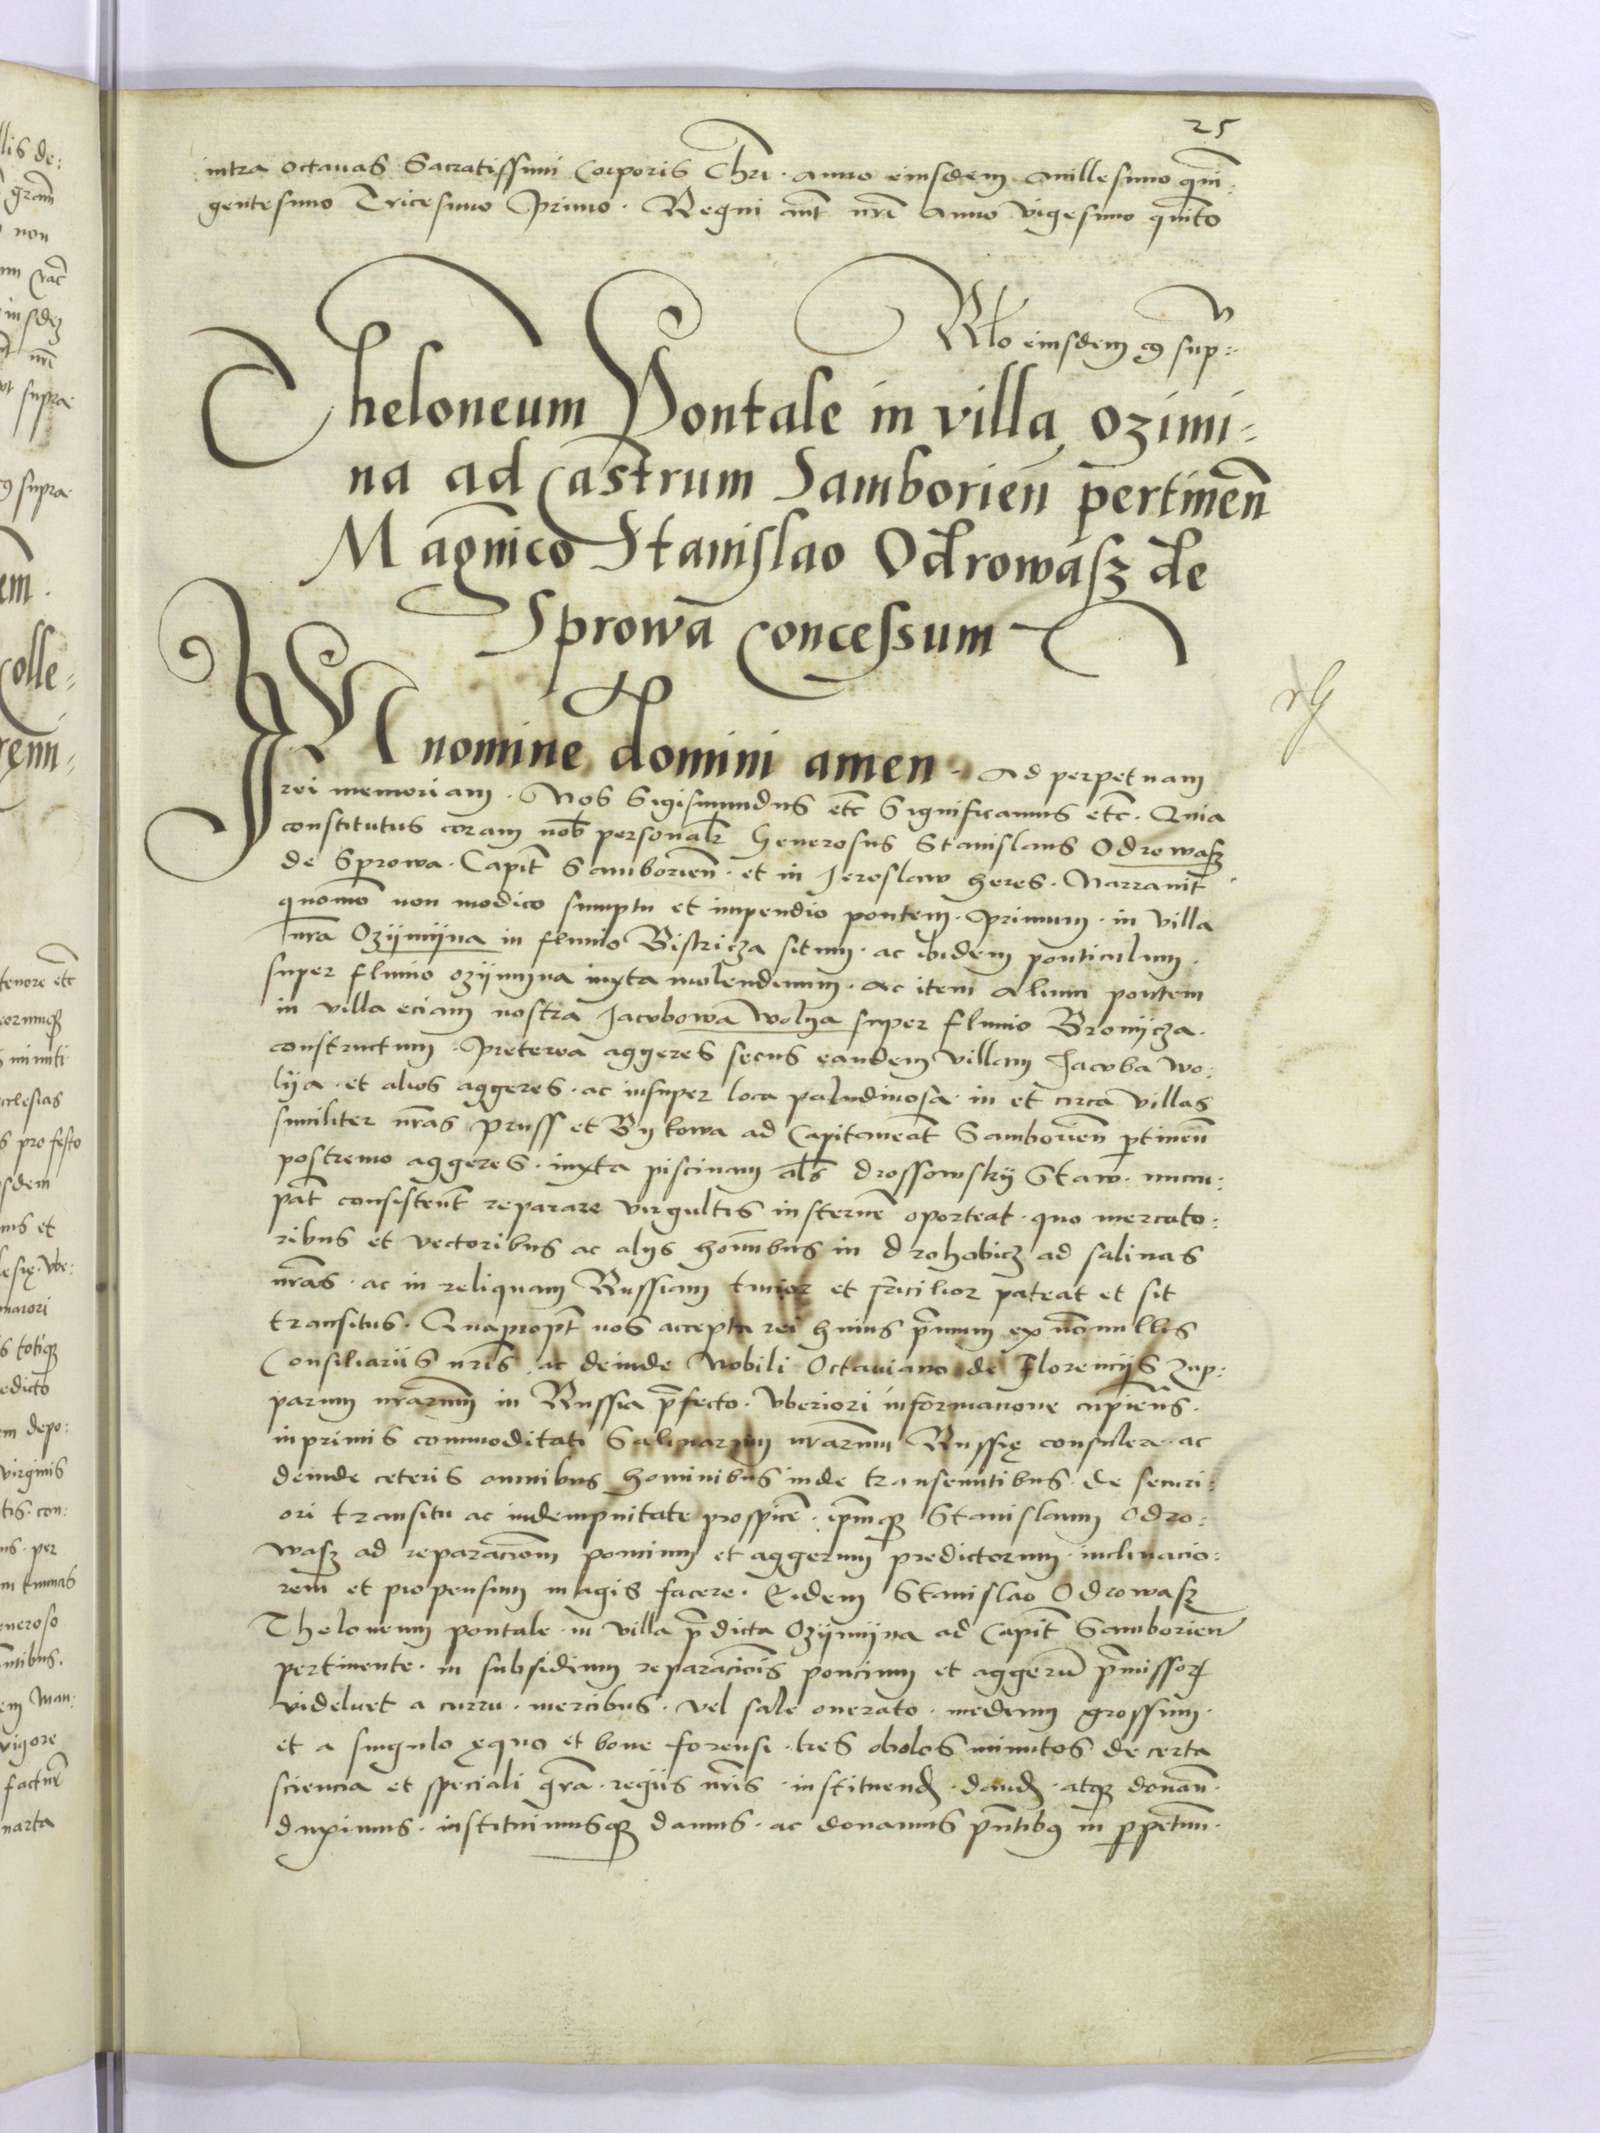 25
intra octauas Sacratissimi Corporis Chri. anno eiusdem millesimo quin:
gentesimo Tricesimo Primo. Regni aut nri Anno vigesimo quinto
Rlo eiusdem cꝰ sup:
Theloneum Pontale in villa ozimi:
na ad castrum Samborien pertinen
Magnico Stanislao Odrowasz de
Sprowa Concessum
IN nomine domini amen. Ad perpetuam
rei memoriam. Nos Sigismundus etc Significamus etc. Quia
constitutus coram nob personalr Generosus Stanislaus Odrowasz
de Sprowa. Capit Samborien. et in Jeroslaw heres. Narrauit
quomo non modico sumptu et impendio pontem. primum. in villa
nra Ozijmijna in fluuio Bistricza situm. ac ibidem ponticulum.
super fluuio ozijmina iuxta molendinum. ac item alium pontem
in villa eciam nostra Jacobowa wolya super fluuio Bronijcza.
constructum. Preterea aggeres secus eandem villam Jacoba wo:
lya. et alios aggeres. ac insuper loca paludinosa. in et circa villas
similiter nras Pruss et Bykowa ad Capitaneat Samborien ptinen
postremo aggeres. iuxta piscinam als drossowskij Staw. nuncu:
pat consistent reparare virgultis insternē oporteat. quo mercato:
ribus et vectoribus ac alijs hominbus in drohobicz ad salinas
nras. ac in reliquam Russiam tucior et facilior pateat et sit
transitus. Quapropt nos accepta rei huius pmum ex nonnullis
Consiliariis nris. ac deinde Nobili Octauiano de Florencijs Zup:
parum nrarum in Russia pfecto. vberiori informatione cupiens.
inprimis commoditati Salinarum nrarum Russię consulere. ac
deinde ceteris omnibus hominibus inde transeuntibus. de securi:
ori transitu ac indempnitate prospicē. ipmqʒ Stanislaum Odro:
wasz ad reparaciom poncium et aggerum predictorum. inclinacio:
rem et propensum magis facere. Eidem Stanislao Odrowasz
Theloneum pontale in villa pdicta Ozijmijna ad Capit Samborien
pertinente. in subsidium reparaciois poncium et aggerū pmissoꝝ
videlicet a curru. mercibus. vel sale onerato. medium grossum.
et a singulo equo et boue forensi. tres obolos minutos de certa
sciencia et speciali gra. regiis nris. instituend. dand. atqʒ donan.
duximus. instituimusqʒ damus. ac donamus pntibꝰ in ppetuū.